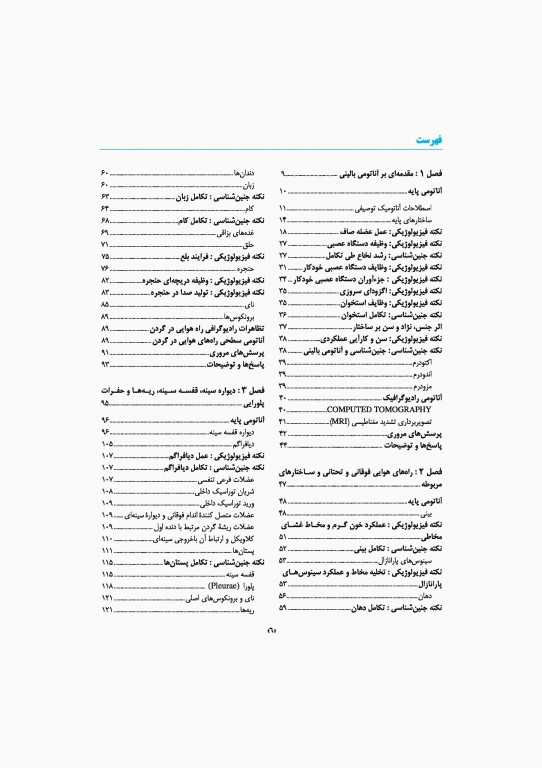 فهرست
فصل ۱ : مقدمه‌ای بر آناتومی بالینی ۹
آناتومی پایه ۱۰
اصطلاحات آناتومیک توصیفی ۱۱
ساختارهای پایه ۱۴
نکته فیزیولوژیکی: عمل عضله صاف ۱۸
نکته فیزیولوژیکی: وظیفه دستگاه عصبی ۲۷
نکته جنین‌شناسی: رشد نخاع طی تکامل ۲۷
نکته فیزیولوژیکی: وظایف دستگاه عصبی خودکار ۳۱
نکته فیزیولوژیکی : جزءآوران دستگاه عصبی خودکار ۳۴
نکته فیزیولوژیکی: اگزودای سروزی ۳۵
نکته فیزیولوژیکی: وظایف استخوان ۳۵
نکته جنین‌شناسی: تکامل استخوان ۳۶
اثر جنس، نژاد و سن بر ساختار ۳۷
نکته فیزیولوژیکی: سن و کارآیی عملکردی ۳۸
نکته جنین‌شناسی: جنین‌شناسی و آناتومی بالینی ۳۸
اکتودرم ۳۹
اندودرم ۳۹
مزودرم ۳۹
آناتومی رادیوگرافیک ۴۰
COMPUTED TOMOGRAPHY ۴۰
تصویربرداری تشدید مغناطیسی (MRI) ۴۱
پرسش‌های مروری ۴۲
پاسخ‌ها و توضیحات ۴۴
فصل ۲ : راه‌های هوایی فوقانی و تحتانی و ساختارهای
مربوطه ۴۷
آناتومی پایه ۴۸
بینی ۴۸
نکته فیزیولوژیکی : عملکرد خون گرم و مخاط غشای
مخاطی ۵۱
نکته جنین‌شناسی : تکامل بینی ۵۲
سینوس‌های پارانازال ۵۳
نکته فیزیولوژیکی : تخلیه مخاط و عملکرد سینوس‌های
پارانازال ۵۳
دهان ۵۶
نکته جنین‌شناسی : تکامل دهان ۵۹
دندان‌ها ۶۰
زبان ۶۰
نکته جنین‌شناسی : تکامل زبان ۶۳
کام ۶۴
نکته جنین‌شناسی : تکامل کام ۶۸
غده‌های بزاقی ۶۹
حلق ۷۱
نکته فیزیولوژیکی : فرایند بلع ۷۵
حنجره ۷۶
نکته فیزیولوژیکی : وظیفه دریچه‌ای حنجره ۸۲
نکته فیزیولوژیکی : تولید صدا در حنجره ۸۳
نای ۸۵
برونکوس‌ها ۸۹
تظاهرات رادیوگرافی راه هوایی در گردن ۸۹
آناتومی سطحی راه‌های هوایی در گردن ۸۹
پرسش‌های مروری ۹۱
پاسخ‌ها و توضیحات ۹۳
فصل ۳ : دیواره سینه، قفسه سینه، ریه‌ها و حفرات
پلورایی ۹۵
آناتومی پایه ۹۶
دیواره قفسه سینه ۹۶
دیافراگم ۱۰۵
نکته فیزیولوژیکی : عمل دیافراگم ۱۰۷
نکته جنین‌شناسی : تکامل دیافراگم ۱۰۷
عضلات فرعی تنفسی ۱۰۷
شریان توراسیک داخلی ۱۰۸
ورید توراسیک داخلی ۱۰۹
عضلات متصل کنندهٔ اندام فوقانی و دیوارهٔ سینه‌ای ۱۰۹
عضلات ریشهٔ گردن مرتبط با دنده اول ۱۰۹
کلاویکل و ارتباط آن باخروجی سینه‌ای ۱۱۰
پستان‌ها ۱۱۱
نکته جنین‌شناسی : تکامل پستان‌ها ۱۱۵
قفسه سینه ۱۱۵
پلورا (Pleurae) ۱۱۸
نای و برونکوس‌های اصلی ۱۲۱
ریه‌ها ۱۲۱
‹۶›